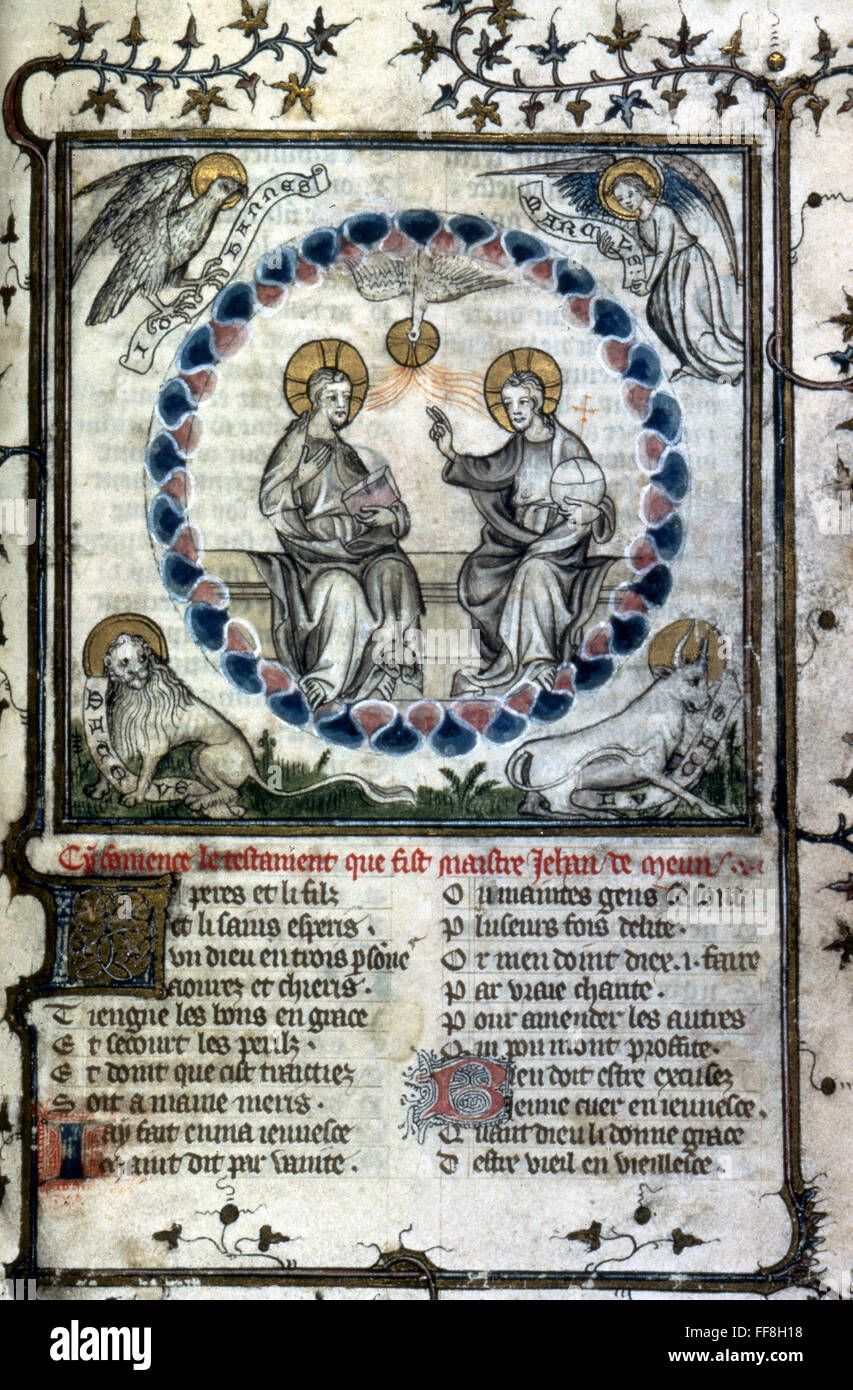 IOHANNES
MARCVS
MATEVS
LVCAS
Cy comence le testament que fist maistre Jehan de Meun
Li peres et li filz
et li sains esperis.
Vn dieu en trois psone
aourez et chieris.
Tiengne les bons en grace
Et secourt les perilz.
Et doint que cist traictiez
Soit a mame meris.
Iay fait en ma ieunesce
dit par vanite.
Ou maintes gens se sont
Pluseurs fois delite.
Or men doint diex .i. faire
Par vraie charite.
Pour amender les autres
Qui pou mont proffite.
Bien doit estre excusez
Jenne cuer en ieunesce.
Quant dieu li donne grace
Destre vieil en vieillesce.
alamy
a
alamy stock photo
FF8H18
www.alamy.com